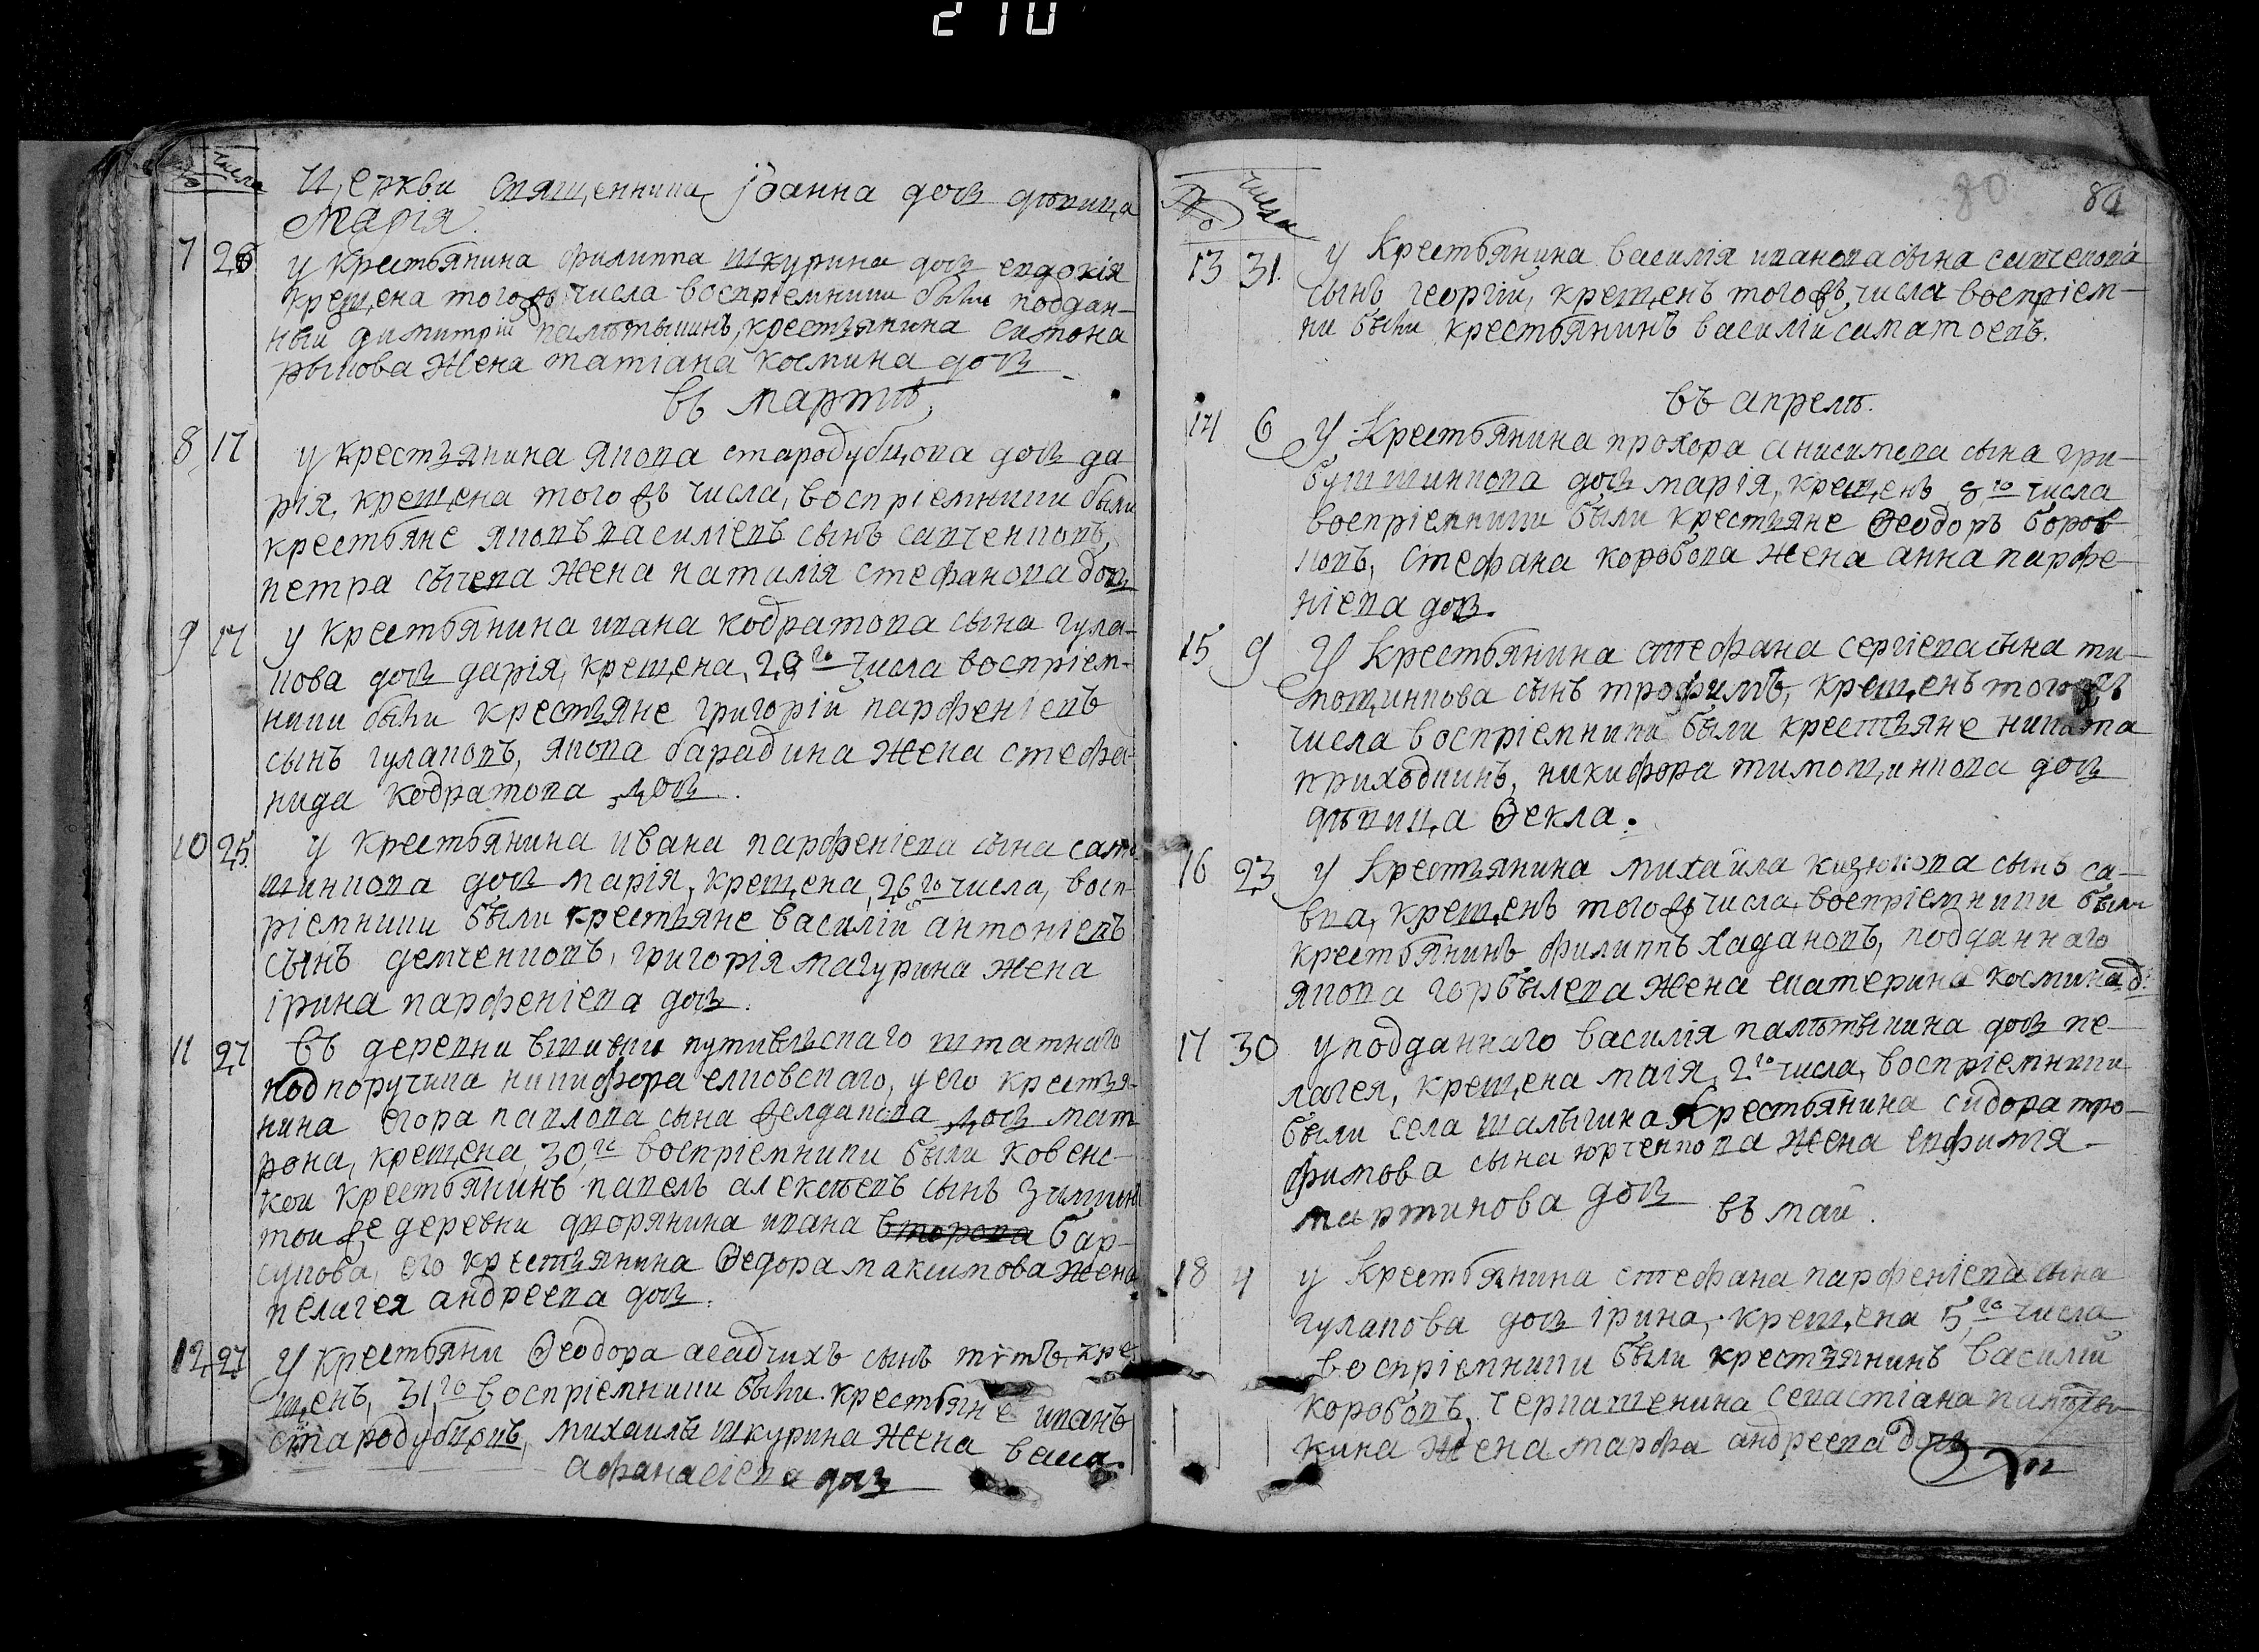 210
№ числа
церкви священника іоанна дочь дѣвица
Марія.
7 26 у крестьянина филиппа шкурина дочь евдокія
крещена тогожъ числа воспріемники были поддан-
ный димитрій палѣтыкинъ, крестьянина симона
рыкова жена татіана космина дочь
въ мартѣ,
8 17 у крестьянина якова стародубцова дочь да
рія, крещена того жъ числа, воспріемники были
крестьяне яковъ василіевъ сынъ савченковъ,
петра сычева жена наталія стефанова дочь
9 17 у крестьянина ивана кодратова сына гула-
кова дочь дарія, крещена, 29 го числа воспріем-
ники были крестьяне григорій парфеніевъ
сынъ гулаковъ, якова барадина жена стефа-
нида кодратова дочь.
10 25 у крестьянина ивана парфеніева сына само
шинкова дочь марія, крещена, 26 го числа, восп-
ріемники были крестьяне василій антоніевъ
сынъ демченковъ, григорія мачурина жена
ірина парфеніева дочь.
11 27 въ деревни вшивки путивльскаго штатнаго
подпоручика никифора елковскаго, у его крестья-
нина егора павлова сына желдакова дочь мат
рона, крещена, 30, го воспріемники были ковенс-
кои крестьянинъ павелъ алексѣевъ сынъ
тои же деревни дворянина ивана бар-
сукова, его крестьянина Ѳедора максимова жена
пелагея андреева дочь.
12 27 У крестьяни Ѳеодора асадчихъ сынъ титъ, кре
щенъ, 31 го воспріемники были крестьяне иванъ
стародубцовъ, михаилы шкурина жена васса
афанасіева дочь
80 81
№ числа
13 31. у крестьянина василія иванова сына савченкова
сынъ георгій, крещенъ того жъ, числа воспріем-
ни были крестьянинъ василій симатоевъ.
въ апреле.
14 6 У Крестьянина прохора анисимова сына гри-
бушинкова дочь марія, крещенъ 8 го числа
воспріемники были крестьяне Ѳеодоръ боров
ковъ, стефана коробова жена анна парфе-
ніева дочь.
15 9 У Крестьянина стефана сергіева сына ти-
мощинкова сынъ трофимъ, крещенъ того жъ
числа воспріемники были крестьяне никита
приходкинъ, никифора тимощинкова дочь
дѣвица Ѳекла.
16 23 у Крестьянина михайла кизюкова сынъ са-
вва, крещенъ тогожъ числа, воспріемники были
крестьянинъ филиппъ хадановъ, подданнаго
якова горбылева жена екатерина космина д:
17 30 у подданнаго василія палѣтыкина дочь пе-
лагея, крещена маія, 2 го числа, воспріемники
были села шалыгина крестьянина сидора тро-
фимова сына юрченкова жена евфимія
мартинова дочь
въ май.
18 4 у Крестьянина стефана парфеніева сына
гулакова дочь ірина, крещена 5, го числа
воспріемники были крестьянинъ василій
коробовъ, черкашенина севастіана палѣты-
кина жена марфа андреева дочь